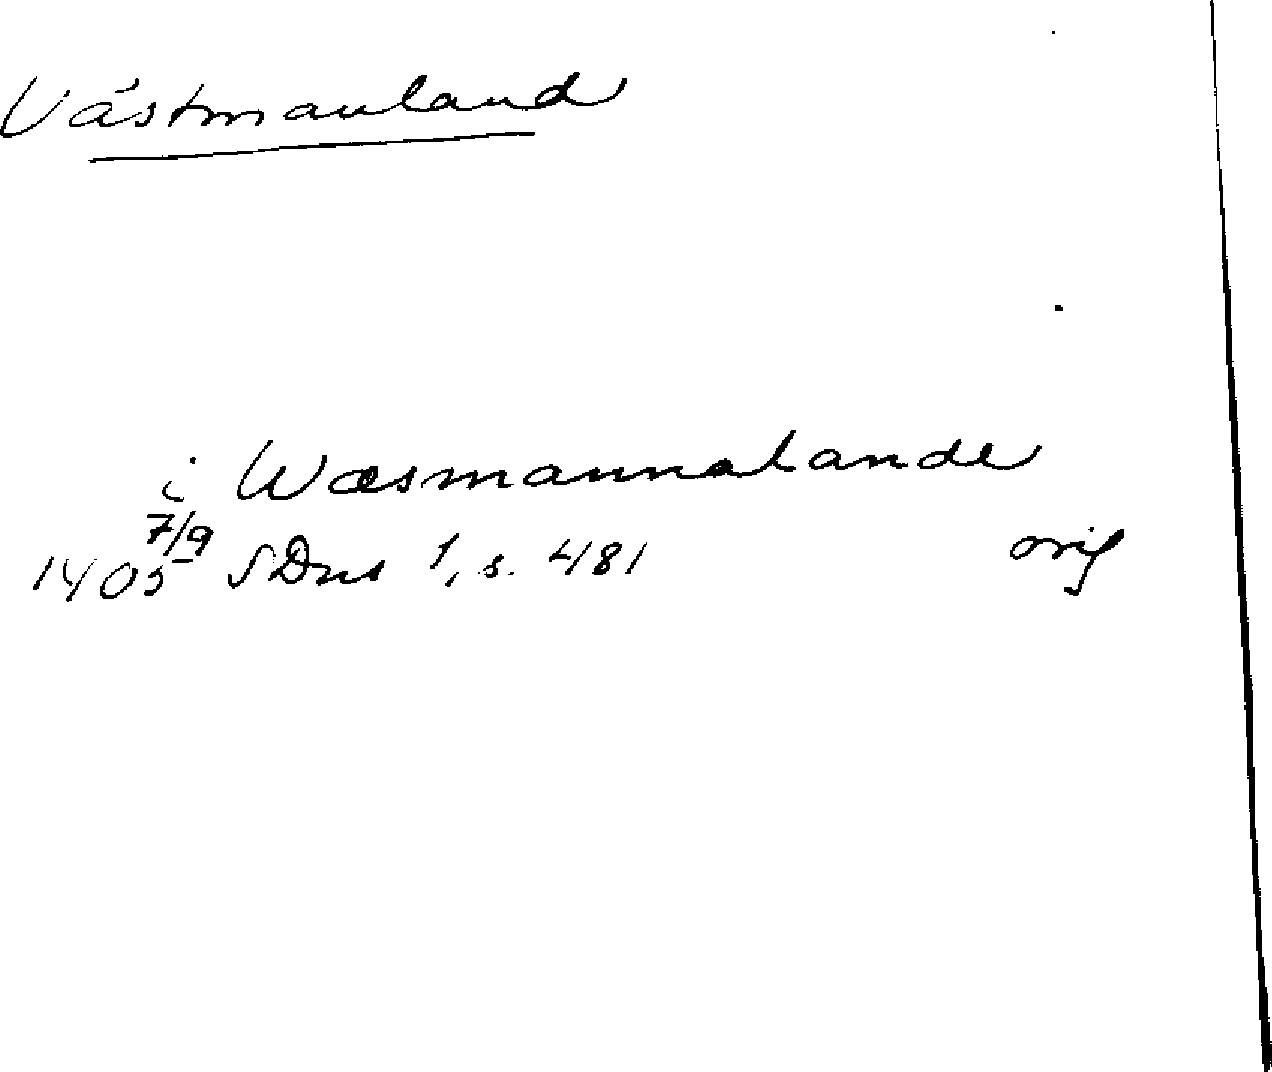 Västmanland
i Wæsmannalande
7/9
1405 SDns 1, s. 481 orig